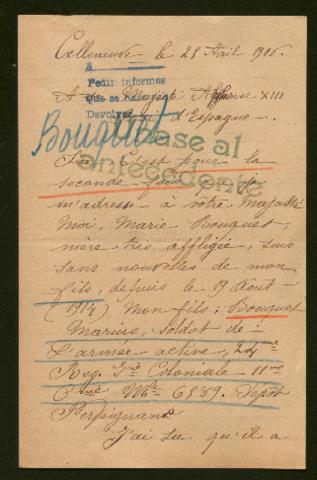 Celleneuve le 25 Avril 1916.
A
Pedir informes
Que se haga
Devolver
A Sa Majesté Alfonse XIII
Roi d'Espagne.
Bouquet
Pase al
antecedente
Sire C'est pour la
seconde fois que je
m'adresse à votre Majesté
Moi, Marie Bouquet,
mère très affligée, suis
sans nouvelles de mon
fils, depuis le 19 Août
(1914) Mon fils: Bouquet
Marius, soldat de
l'armée active, 24me
Reg. Ire Coloniale - 11me
Cie Mle 6589. Dépôt
Perpignan
J'ai su qu'il a